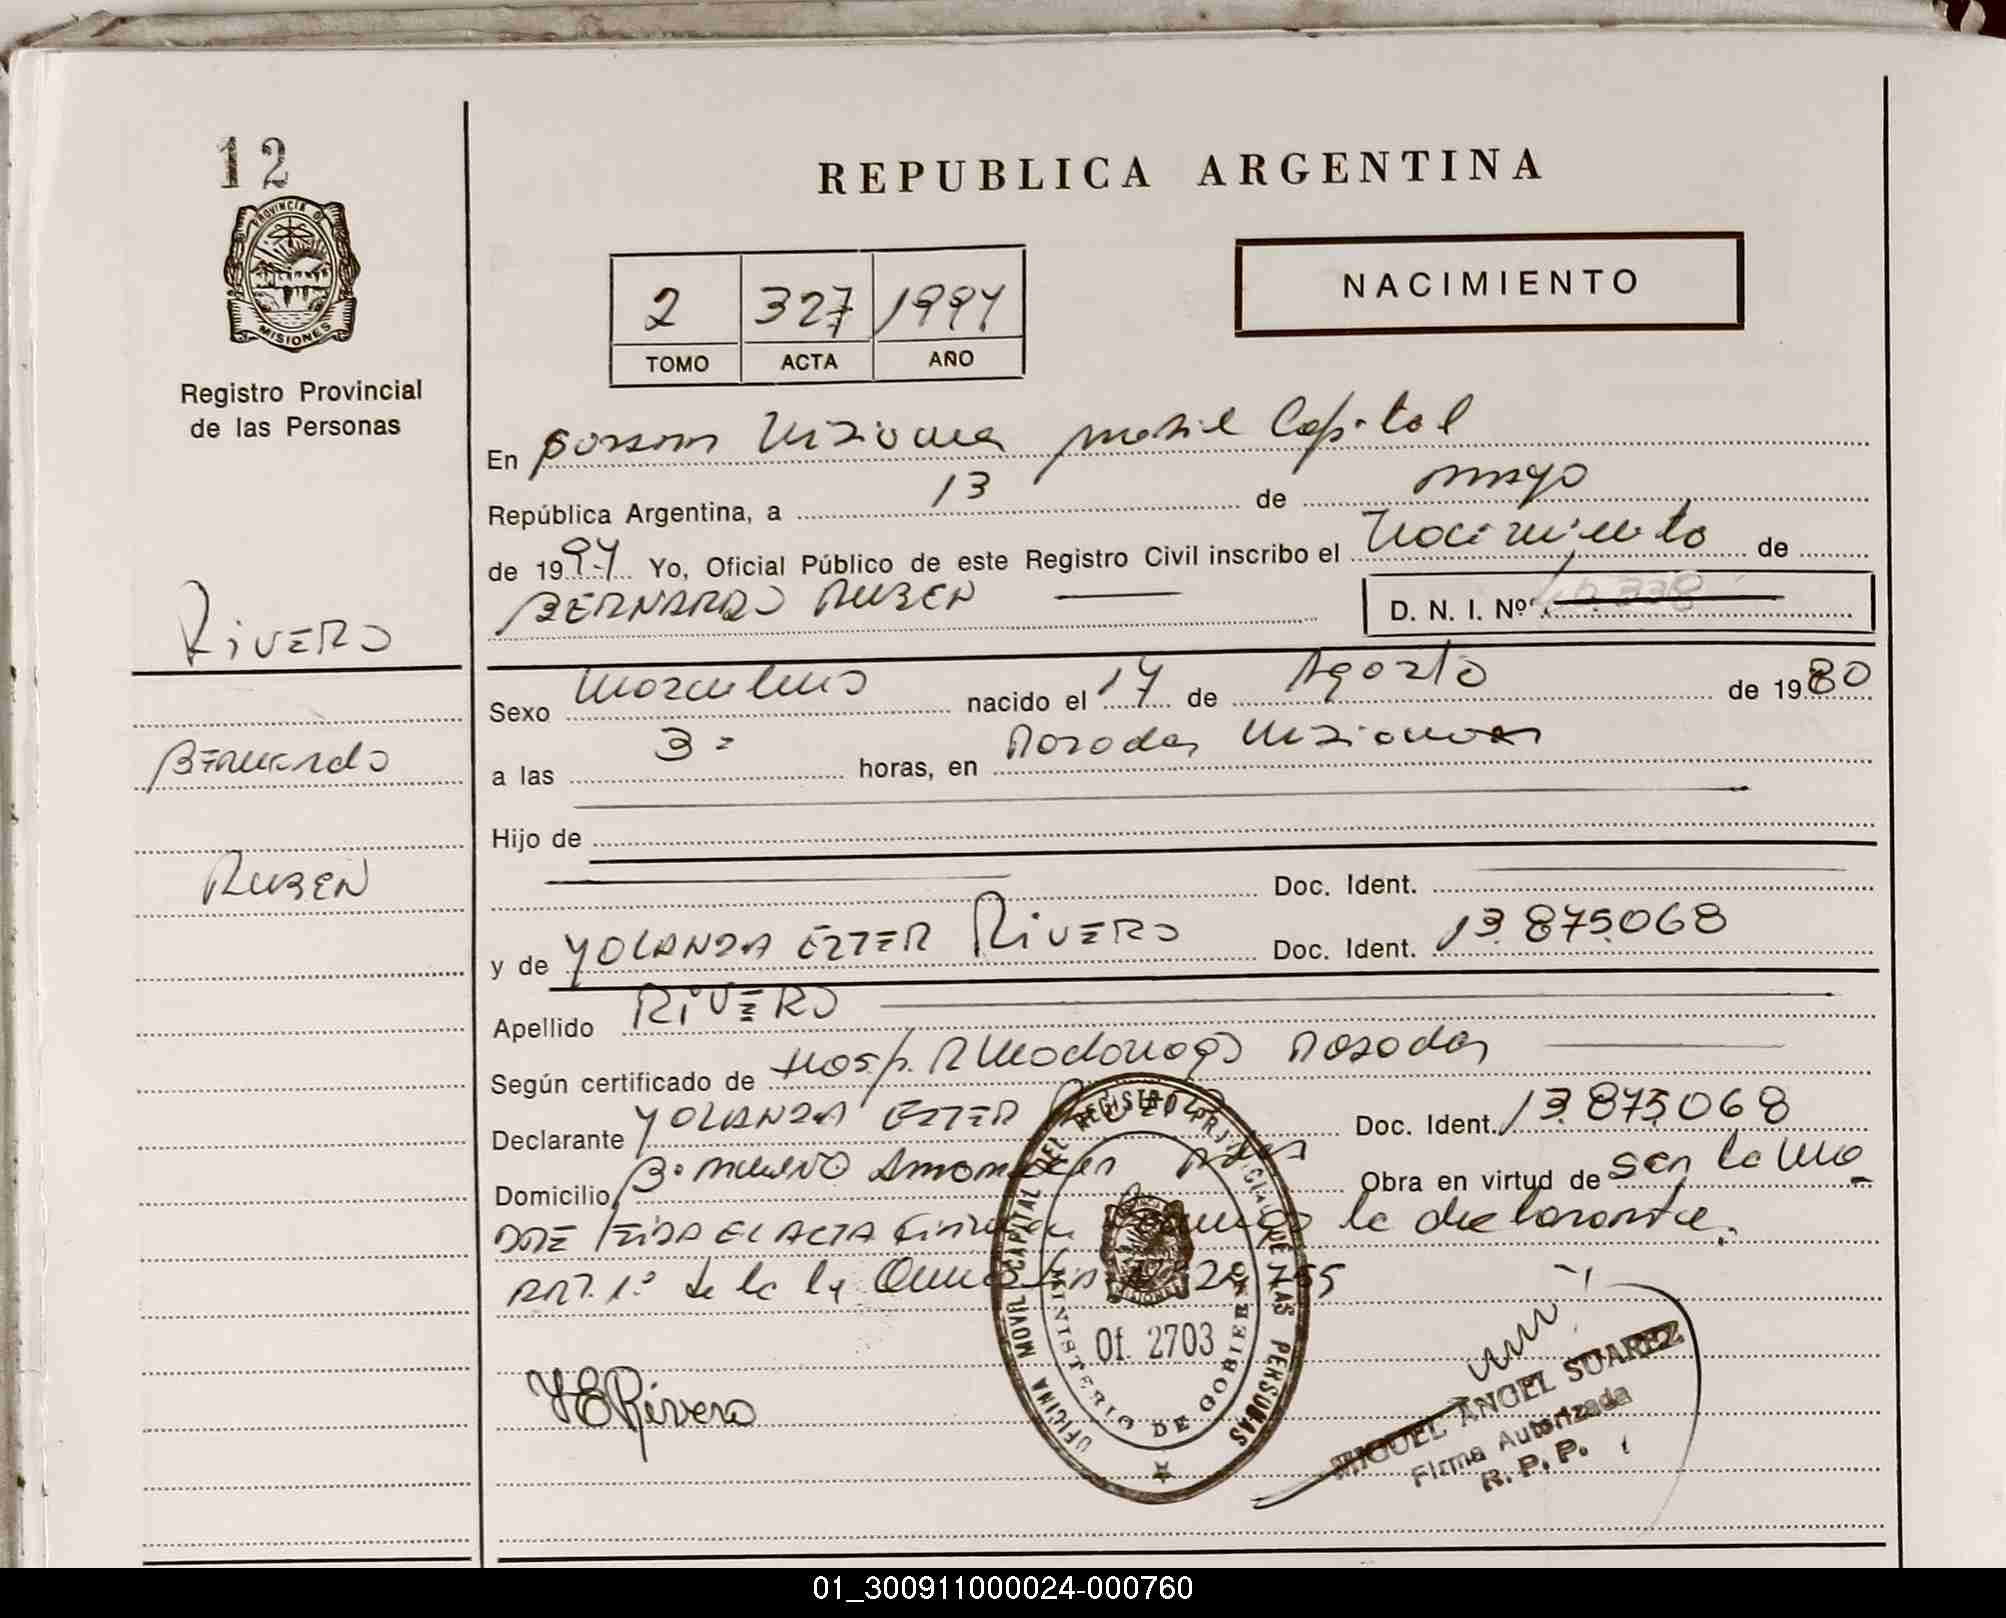 12
PROVINCIA DE
MISIONES
Registro Provincial
de las Personas
REPUBLICA ARGENTINA
NACIMIENTO
2 327 1994
TOMO ACTA AÑO
En Misiones Capital
República Argentina, a 13 de mayo
de 1994 Yo, Oficial Público de este Registro Civil inscribo el Nacimiento de
BERNARDO RUBEN
D. N. I. Nº
RIVERO
Bernardo
RUBEN
Sexo Masculino nacido el 17 de Agosto de 1980
a las 3 horas, en Posadas Misiones
Hijo de
Doc. Ident.
y de YOLANDA ESTER RIVERO Doc. Ident. 13.875.068
Apellido RIVERO
Según certificado de Hosp. R Madariaga Posadas
Declarante YOLANDA ESTER Doc. Ident. 13.875.068
Domicilio Bº NUEVO Obra en virtud de ser la ma
DRE leida EL ACTA la declarante.
ART. 1º de la ley
YERivero
OFICINA MOVIL CAPITAL DEL REGISTRO PROVINCIAL DE LAS PERSONAS
MINISTERIO DE GOBIERNO
Of. 2703
MIGUEL ANGEL SUAREZ
Firma Autorizada
R. P. P.
01_300911000024-000760